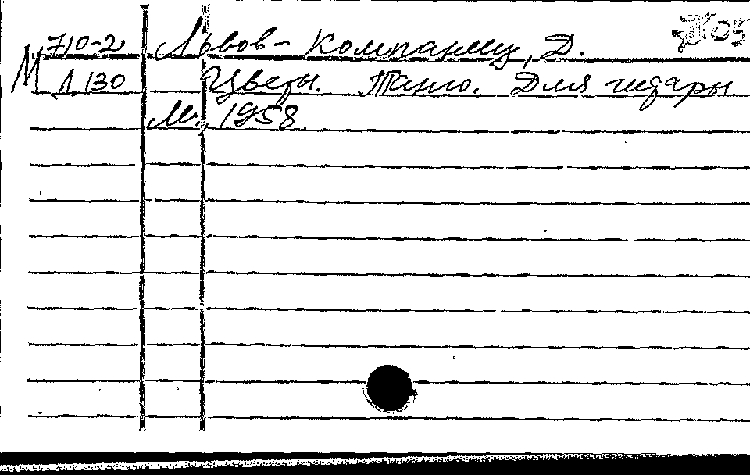 710-2 Львов-Компанеец, Д.
М Л 130 Цветы. Танго. Для гитары
М., 1958